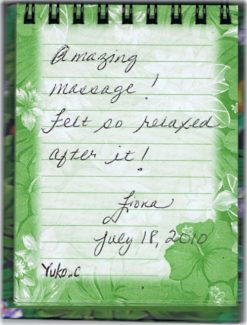 Amazing
massage!
Felt so relaxed
after it!
Fiona
July 18, 2010
Yuko.C